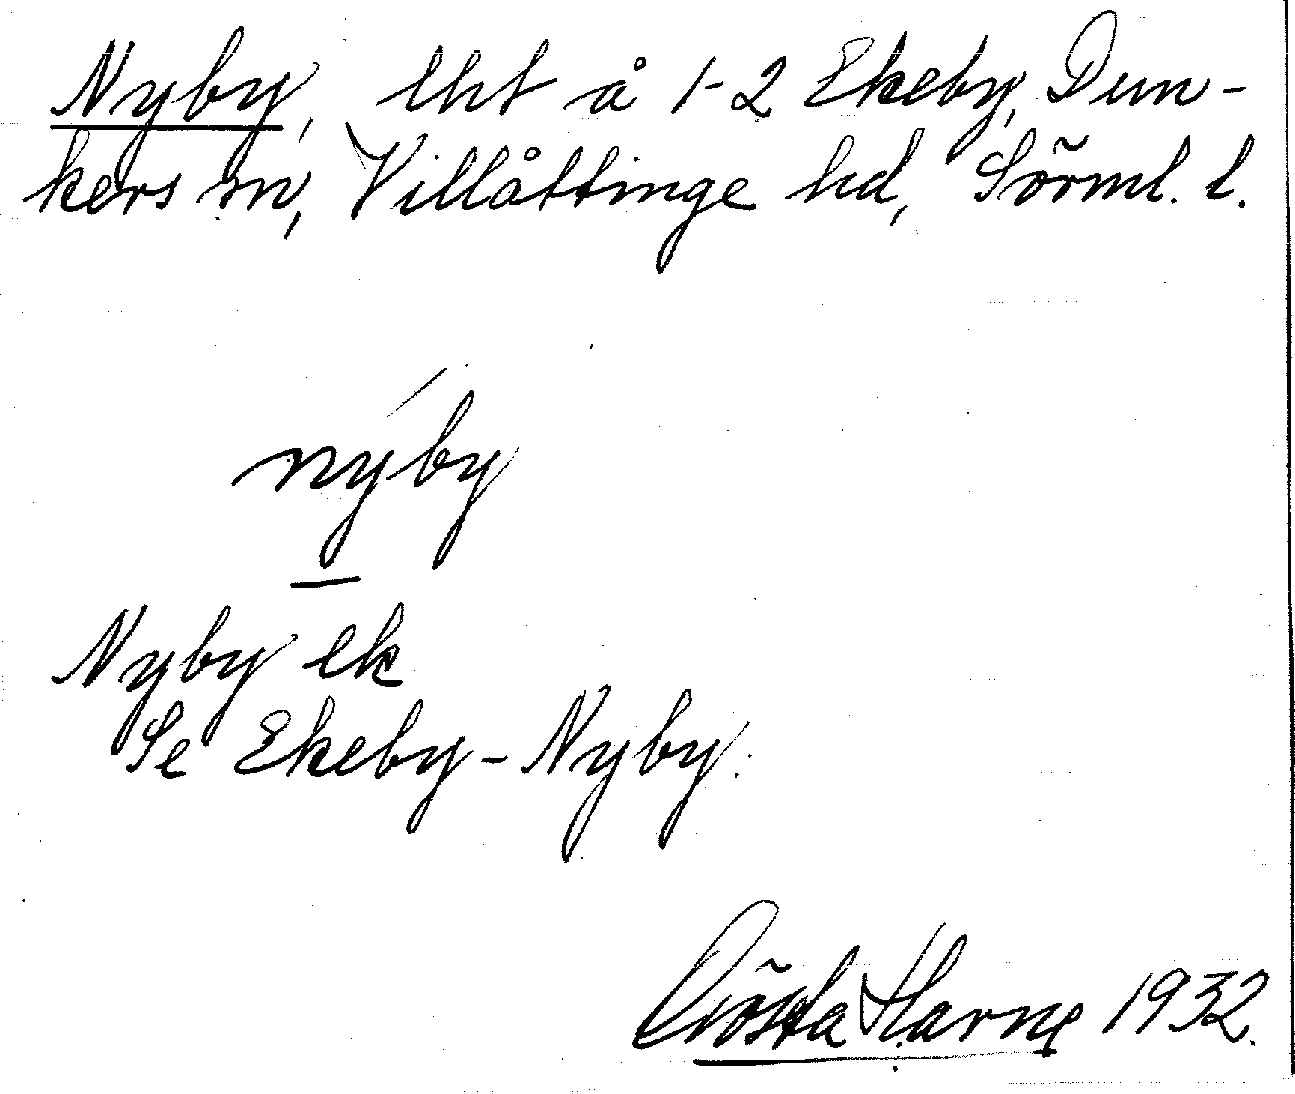 Nyby, lht å 1-2 Ekeby, Dun-
kers sn, Villåttinge hd, Sörml. l.
nýby
Nyby ek
Se Ekeby-Nyby.
Gösta Harne 1932.